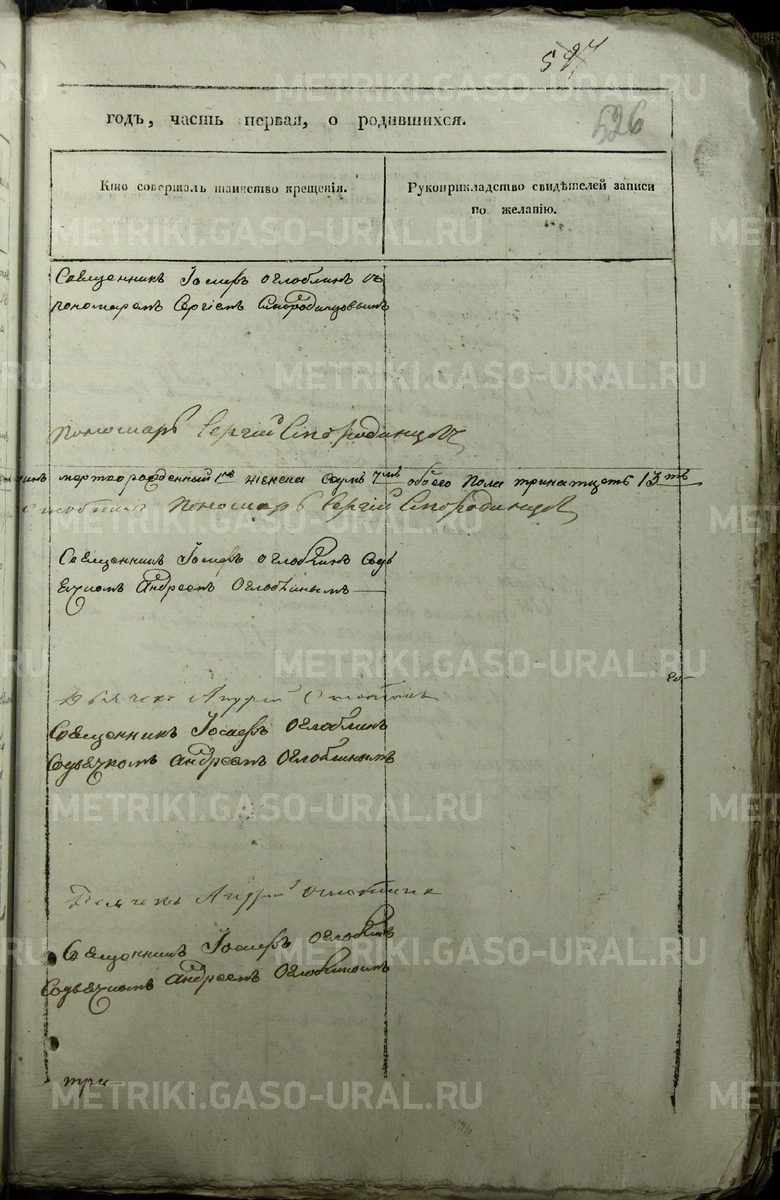 526
годъ, часть первая, о родившихся.
Кто совершалъ таинство крещенія.
Рукоприкладство свидѣтелей записи
по желанію.
Священникъ Іосифъ Оглоблинъ съ
пономаремъ Сергіемъ Смородинцовымъ
Пономарь Сергій Смородинцовъ
мертворожденный женска обоего пола тринатцеть 13ть
Пономарь Сергій Смородинцовъ
Священникъ Іосифъ Оглоблинъ Содь
ячкомъ Андреемъ Оглоблинымъ
Андрей
Священникъ Іосифъ Оглоблинъ
Содьячкомъ Андреемъ Оглоблинымъ
Андрей
Священникъ Іосифъ Оглоблинъ
Содьячкомъ Андреемъ Оглоблинымъ
три
METRIKI.GASO-URAL.RU